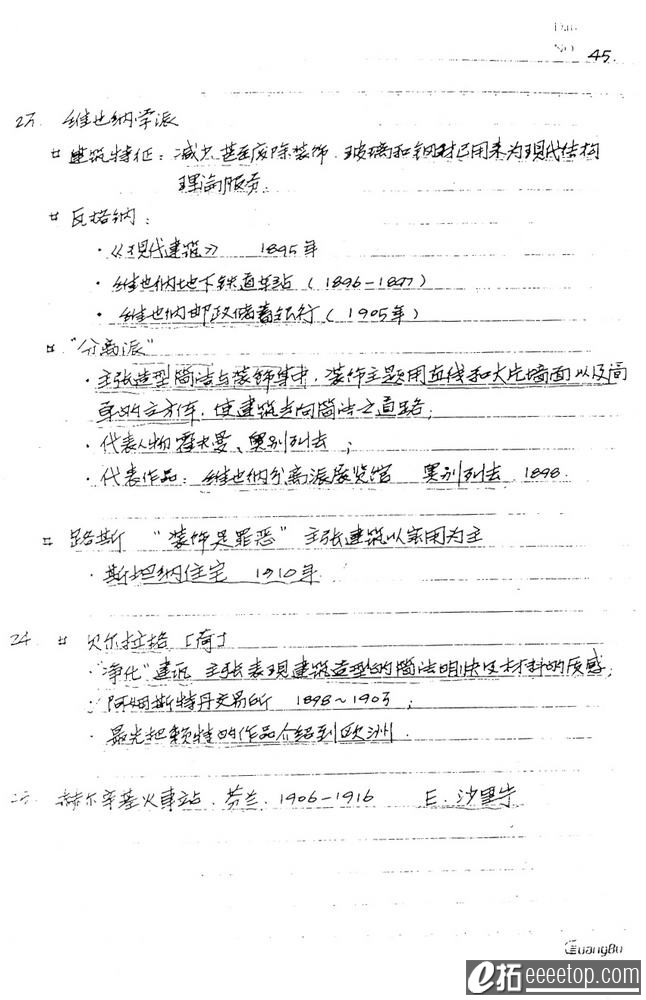 Date
NO 45.
23. 维也纳学派
建筑特征: 减少甚至废除装饰. 玻璃和钢材已用来为现代结构
理论服务.
瓦格纳:
·《现代建筑》 1895年
· 维也纳地下铁道车站 (1896-1897)
· 维也纳邮政储蓄银行 (1905年)
"分离派"
· 主张造型简洁与装饰集中. 装饰主题用直线和大片墙面以及简
单的立方体, 使建筑走向简洁之道路;
· 代表人物 霍夫曼、奥别列去;
· 代表作品: 维也纳分离派展览馆 奥别列去 1898.
路斯 "装饰是罪恶" 主张建筑以实用为主
· 斯坦纳住宅 1910年
24. 贝尔拉格 [荷]
· "净化"建筑 主张表现建筑造型的简洁明快及材料的质感;
· 阿姆斯特丹交易所 1898~1903;
· 最先把赖特的作品介绍到欧洲.
25. 赫尔辛基火车站. 芬兰. 1906-1916 E. 沙里宁
GuangBo
e拓eeeetop.com